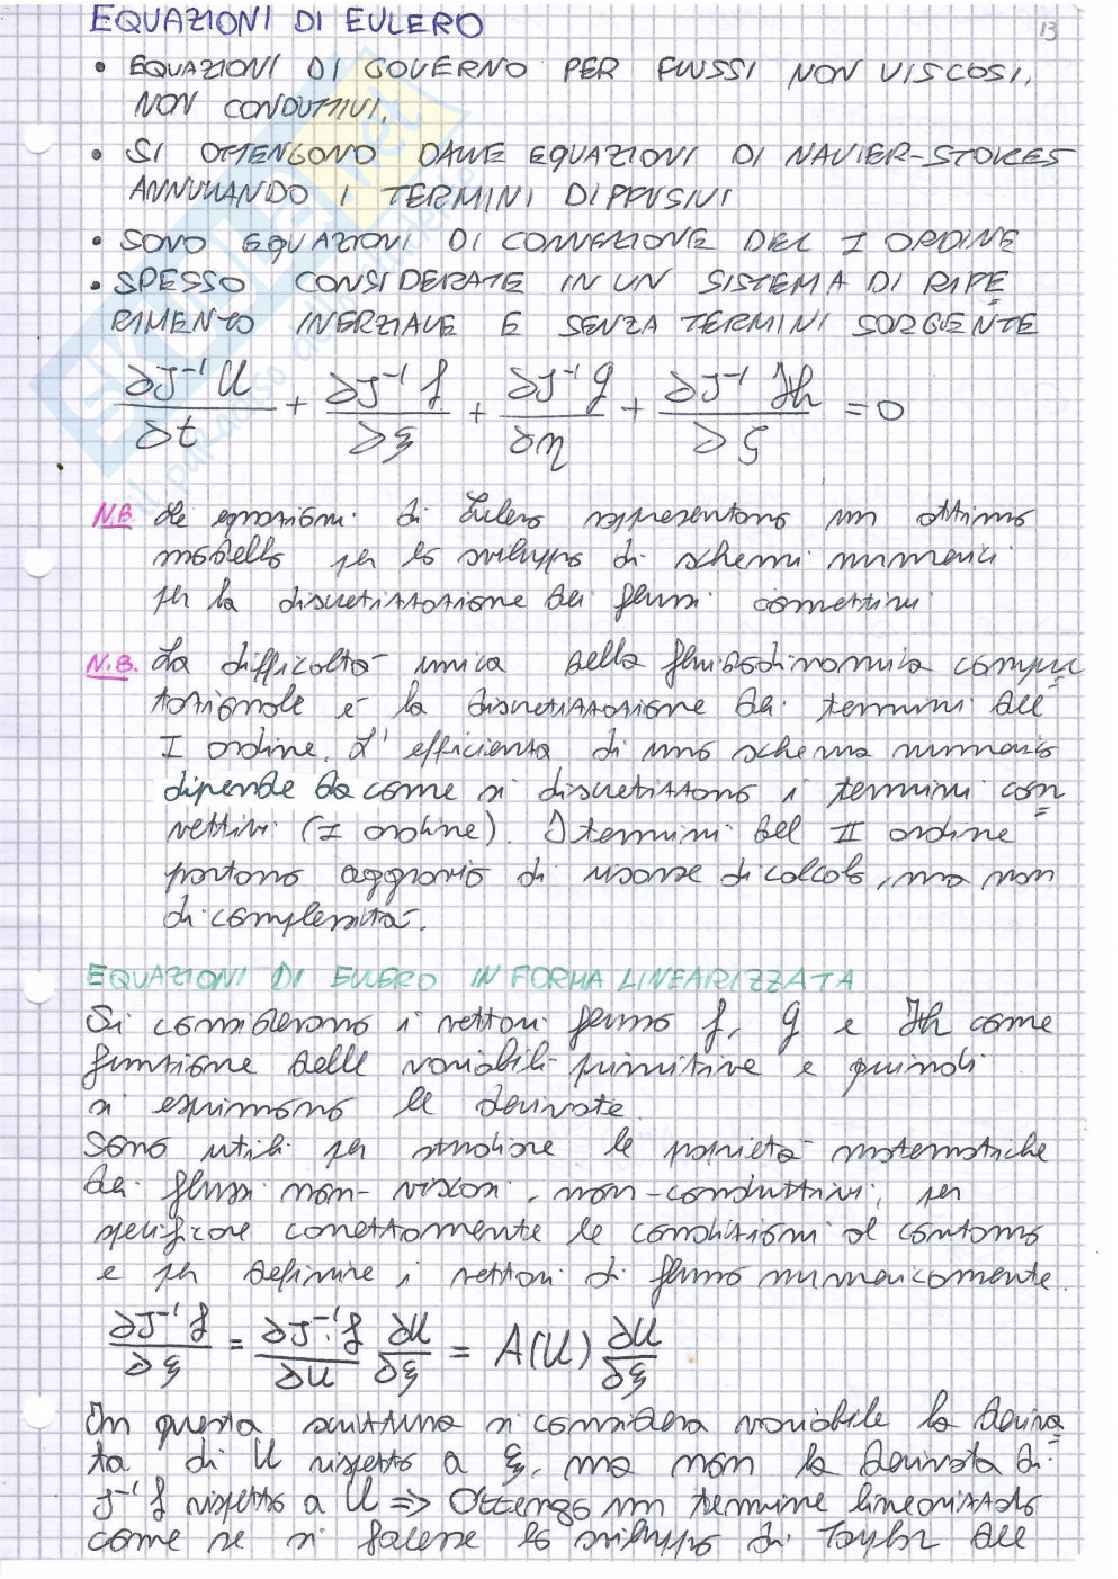 EQUAZIONI DI EULERO
13
• EQUAZIONI DI GOVERNO PER FLUSSI NON VISCOSI,
NON CONDUTTIVI.
• SI OTTENGONO DALLE EQUAZIONI DI NAVIER-STOKES
ANNULLANDO I TERMINI DIFFUSIVI
• SONO EQUAZIONI DI CONVEZIONE DEL I ORDINE
• SPESSO CONSIDERATE IN UN SISTEMA DI RIFE
RIMENTO INERZIALE E SENZA TERMINI SORGENTE
∂J⁻¹U/∂t + ∂J⁻¹f/∂ξ + ∂J⁻¹g/∂η + ∂J⁻¹h/∂ζ = 0
N.B. Le equazioni di Eulero rappresentano un ottimo
modello per lo sviluppo di schemi numerici
per la discretizzazione dei flussi convettivi
N.B. La difficoltà unica della fluidodinamica compu
tazionale è la discretizzazione dei termini del
I ordine. L'efficienza di uno schema numerico
dipende da come si discretizzano i termini con
vettivi (I ordine). I termini del II ordine
portano aggravio di risorse di calcolo, ma non
di complessità.
EQUAZIONI DI EULERO IN FORMA LINEARIZZATA
Si considerano i vettori flusso f, g e h come
funzione delle variabili primitive e quindi
si esprimono le derivate.
Sono utili per studiare le proprietà matematiche
dei flussi non-viscosi, non-conduttivi, per
specificare correttamente le condizioni al contorno
e per definire i vettori di flusso numericamente.
∂J⁻¹f/∂ξ = ∂J⁻¹f/∂U ∂U/∂ξ = A(U) ∂U/∂ξ
In questa scrittura si considera variabile la deriva
ta di U rispetto a ξ, ma non la derivata di
J⁻¹f rispetto a U ⇒ Ottengo un termine linearizzato
come se si facesse lo sviluppo di Taylor del